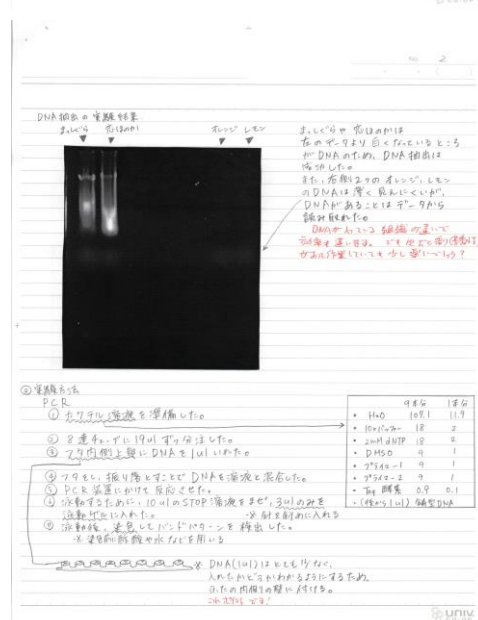 No 2
DNA抽出の実験結果
まっしぐら 恋ほのか オレンジ レモン
まっしぐらや恋ほのかは
左のデータより白くなっているところ
がDNAのため、DNA抽出は
成功した。
また、右側2つのオレンジ、レモン
のDNAは薄く見えにくいが、
DNAがあることはデータから
読み取れた。
DNAが
の違いで
◎実験方法
PCR
① カクテル溶液を準備した。
② 8連チューブに19ulずつ分注した。
③ フタ内側上壁にDNAを1ulいれた。
④ フタをし、振り落とすことでDNAを溶液と混合した。
⑤ PCR装置にかけて反応させた。
⑥ 泳動するために、10ulのSTOP溶液をまぜ、3ulのみを
泳動ゲルに入れた。 ※針を斜めに入れる
泳動後、染色してバンドパターンを検出した。
9本分 1本分
・ H2O 107.1 11.9
・ 10×バッファー 18 2
・ 2mM dNTP 18 2
・ DMSO 9 1
・ プライマー1 9 1
・ プライマー2 9 1
・ Taq 酵素 0.9 0.1
・ (後から1ul) 鋳型DNA
※ DNA(1ul)はとても少なく、
入れたかどうかわかるようにするため、
ふたの内側の壁に付ける。
univ